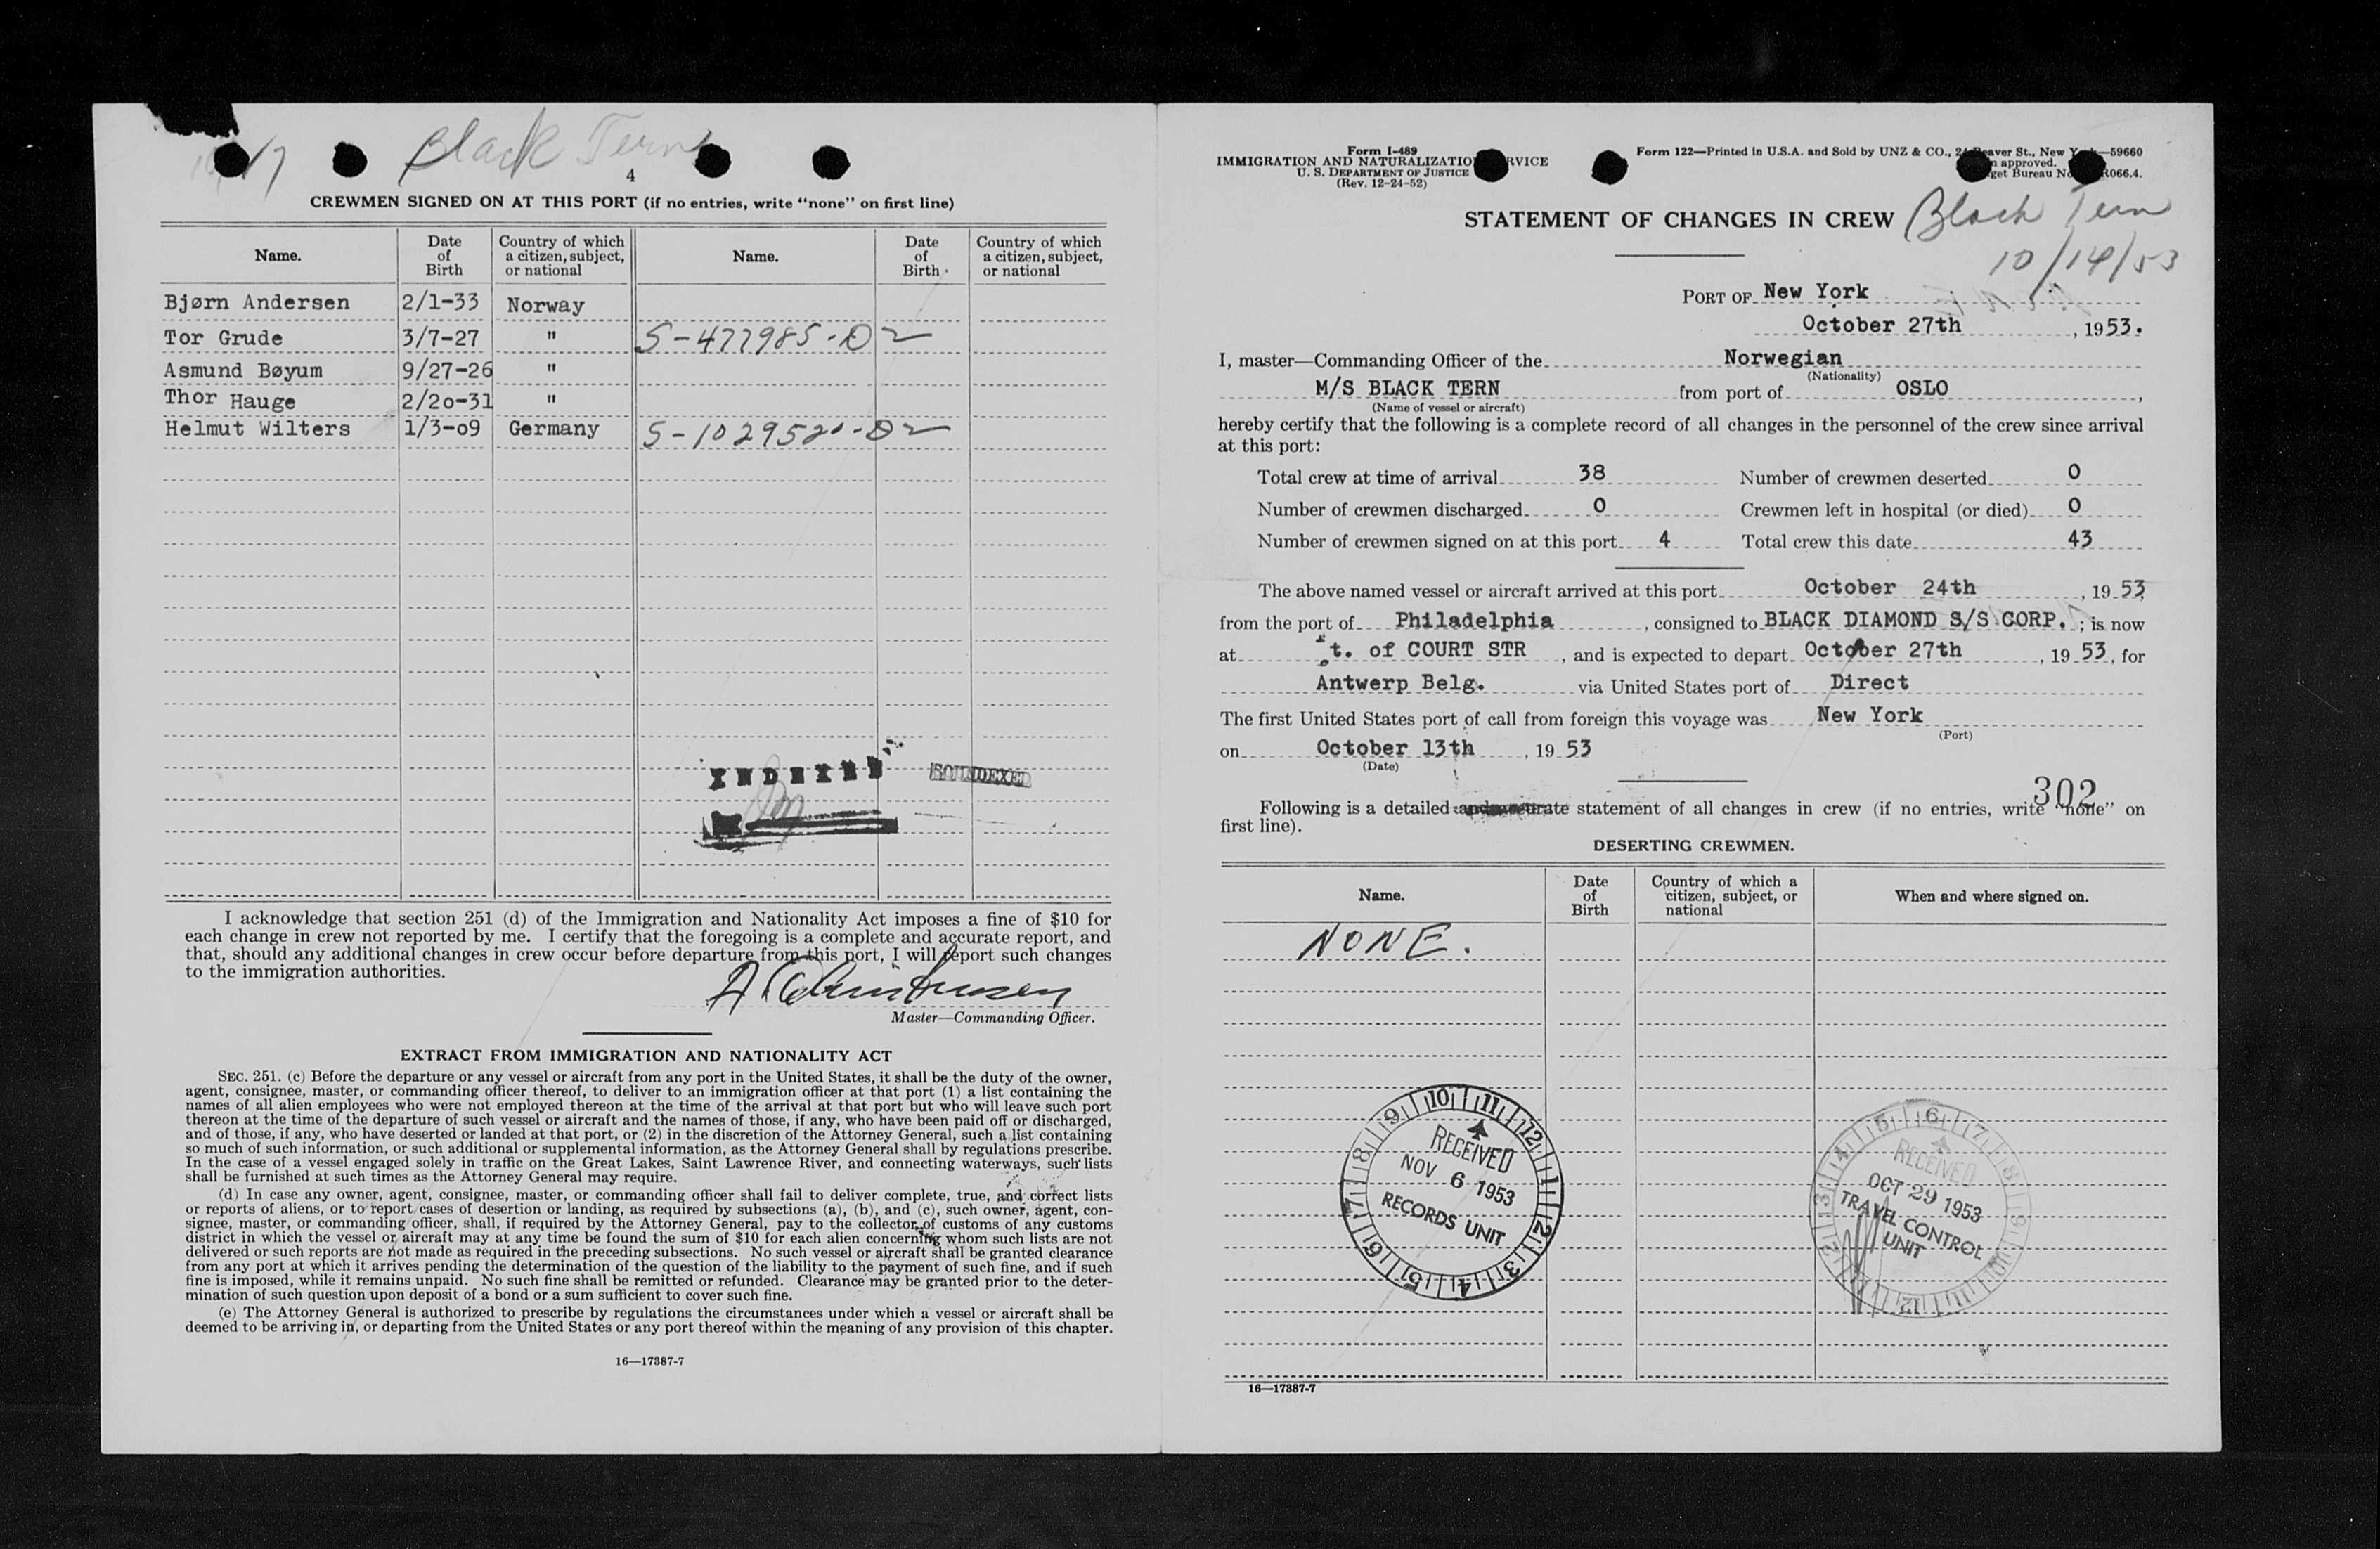 Black Tern
4
CREWMEN SIGNED ON AT THIS PORT (if no entries, write "none" on first line)
Name. Date of Birth Country of which a citizen, subject, or national Name. Date of Birth Country of which a citizen, subject, or national
Bjørn Andersen 2/1-33 Norway
Tor Grude 3/7-27 " S-477985-D2
Asmund Bøyum 9/27-26 "
Thor Hauge 2/2o-31 "
Helmut Wilters 1/3-o9 Germany S-1029520-D2
INDEXED
SOUNDEXED
I acknowledge that section 251 (d) of the Immigration and Nationality Act imposes a fine of $10 for
each change in crew not reported by me. I certify that the foregoing is a complete and accurate report, and
that, should any additional changes in crew occur before departure from this port, I will report such changes
to the immigration authorities.
Master—Commanding Officer.
EXTRACT FROM IMMIGRATION AND NATIONALITY ACT
SEC. 251. (c) Before the departure or any vessel or aircraft from any port in the United States, it shall be the duty of the owner,
agent, consignee, master, or commanding officer thereof, to deliver to an immigration officer at that port (1) a list containing the
names of all alien employees who were not employed thereon at the time of the arrival at that port but who will leave such port
thereon at the time of the departure of such vessel or aircraft and the names of those, if any, who have been paid off or discharged,
and of those, if any, who have deserted or landed at that port, or (2) in the discretion of the Attorney General, such a list containing
so much of such information, or such additional or supplemental information, as the Attorney General shall by regulations prescribe.
In the case of a vessel engaged solely in traffic on the Great Lakes, Saint Lawrence River, and connecting waterways, such lists
shall be furnished at such times as the Attorney General may require.
(d) In case any owner, agent, consignee, master, or commanding officer shall fail to deliver complete, true, and correct lists
or reports of aliens, or to report cases of desertion or landing, as required by subsections (a), (b), and (c), such owner, agent, con-
signee, master, or commanding officer, shall, if required by the Attorney General, pay to the collector of customs of any customs
district in which the vessel or aircraft may at any time be found the sum of $10 for each alien concerning whom such lists are not
delivered or such reports are not made as required in the preceding subsections. No such vessel or aircraft shall be granted clearance
from any port at which it arrives pending the determination of the question of the liability to the payment of such fine, and if such
fine is imposed, while it remains unpaid. No such fine shall be remitted or refunded. Clearance may be granted prior to the deter-
mination of such question upon deposit of a bond or a sum sufficient to cover such fine.
(e) The Attorney General is authorized to prescribe by regulations the circumstances under which a vessel or aircraft shall be
deemed to be arriving in, or departing from the United States or any port thereof within the meaning of any provision of this chapter.
16—17387-7
Form I-489
IMMIGRATION AND NATURALIZATIO RVICE
U. S. DEPARTMENT OF JUSTICE
(Rev. 12-24-52)
Form 122—Printed in U.S.A. and Sold by UNZ & CO., 24 Beaver St., New Y —59660
approved.
get Bureau No. R066.4.
STATEMENT OF CHANGES IN CREW
Black Tern
10/14/53
PORT OF New York
October 27th, 1953.
I, master—Commanding Officer of the Norwegian
(Nationality)
M/S BLACK TERN from port of OSLO,
(Name of vessel or aircraft)
hereby certify that the following is a complete record of all changes in the personnel of the crew since arrival
at this port:
Total crew at time of arrival 38 Number of crewmen deserted 0
Number of crewmen discharged 0 Crewmen left in hospital (or died) 0
Number of crewmen signed on at this port 4 Total crew this date 43
The above named vessel or aircraft arrived at this port October 24th, 19 53
from the port of Philadelphia, consigned to BLACK DIAMOND S/S CORP.; is now
at t. of COURT STR, and is expected to depart October 27th, 19 53, for
Antwerp Belg. via United States port of Direct
The first United States port of call from foreign this voyage was New York
(Port)
on October 13th, 19 53
(Date)
302
Following is a detailed statement of all changes in crew (if no entries, write "none" on
first line).
DESERTING CREWMEN.
Name. Date of Birth Country of which a citizen, subject, or national When and where signed on.
NONE.
RECEIVED
NOV 6 1953
RECORDS UNIT
RECEIVED
OCT 29 1953
TRAVEL CONTROL
UNIT
16—17387-7